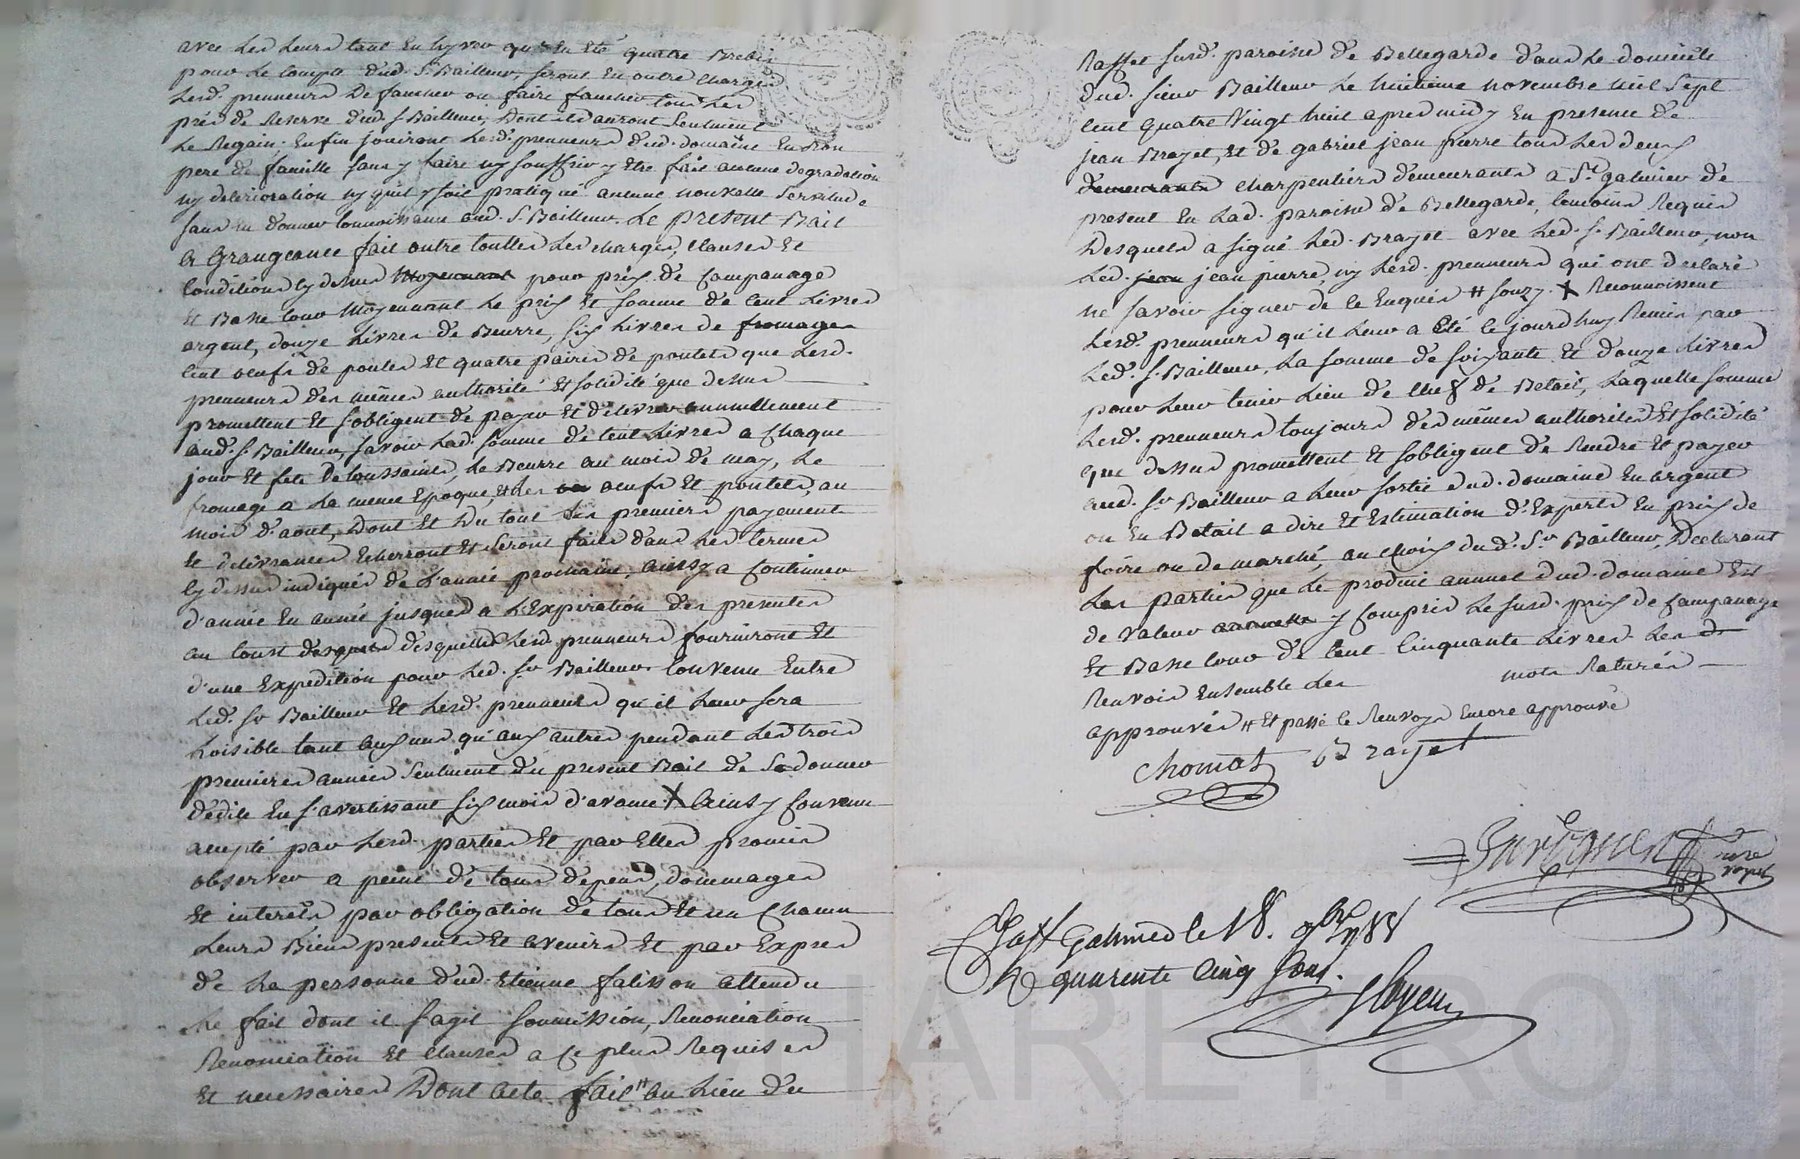 avec les leurs tant en hyver qu'en Eté quatre Brebis
pour le compte dud. Sr. Bailleur, seront en outre chargés
lesd. prenneurs de faucher ou faire faucher tous les
prés de reserve dud. S Bailleur, dont ils auront seulment
le Regain. Enfin jouiront lesd. prenneurs dud. domaine En bon
pere de famille sans y faire ny souffrir y Etre fait aucune degradation
ny deterioration ny qu'il y soit pratiqué aucune nouvelle servitude
sans en donner connoissance aud. S. Bailleur. Le present Bail
a Grangeance fait outre touttes les charges, clauses Et
conditions cy dessus moyennant pour prix de Campanage
Et Basse cour moyennant le prix Et somme de cent livres
argent, douze livres de Beurre, six livres de fromages
cent oeufs de poules Et quatre paires de poulets que lesd.
prenneurs des mêmes authorité Et solidité que dessus
promettent Et s'obligent de payer Et délivrer annuellement
aud. S. Bailleur, savoir lad. somme de cent livres a chaque
jour Et fete de toussaints, le Beurre au mois de may, le
fromage a la meme Epoque, Et les oeufs Et poulets, au
mois d'aout, dont Et du tout les premiers payements
Et delivrances Echerront Et seront faits dans les termes
cy dessus indiqués de l'année prochaine, ainsy a continuer
d'année En année jusques a l'Expiration des presentes
au coust desquelles lesd. prenneurs fourniront Et
d'une Expedition pour led. Sr Bailleur convenu Entre
led. Sr Bailleur Et lesd. prenneurs qu'il leur sera
loisible tant aux uns qu'aux autres pendant les trois
premieres années seulment du present Bail de se donner
dédite En s'avertissant six mois d'avance X Ainsy convenu
accepté par lesd. parties Et par Elles promis
observer a peine de tous depens, dommages
Et interets par obligation de tous Et un chacun
leurs Biens presents Et avenirs Et par Exprès
de la personne dud. Etienne falisson attendu
le fait dont il s'agit soumission, Renonciation
Renonciation Et clauses a ce plus Requises
Et necessaires Dont acte fait # au lieu du
Raffet susd. paroisse de Bellegarde dans le domicile
dud. sieur Bailleur le huitieme novembre mil sept
cent quatre vingt huit apres midy En presence de
jean Brayet, Et de gabriel jean pierre tous les deux
demeurants charpentiers demeurants a St. galmier de
present En lad. paroisse de Bellegarde, temoins Requis
desquels a signé led. Brayet avec led. S. Bailleur, non
led. jean jean pierre, ny lesd. prenneurs qui ont declaré
ne savoir signer de ce Enquis # X Reconnoissent
lesd. prenneurs qu'il leur a Eté ce jourd'huy Remis par
led. S. Bailleur, la somme de soixante Et douze livres
pour leur tenir lieu de chef de Betail, laquelle somme
lesd. prenneurs toujours des mêmes authorité Et solidité
que dessus promettent Et s'obligent de Rendre Et payer
aud. Sr. Bailleur a leur sortie dud. domaine En argent
ou En Betail a dire Et Estimation d'Experts En prix de
foire ou de marché, au choix dud. Sr. Bailleur, Declarant
les parties que le produit annuel dud. domaine Est
de valeur y compris le susd. prix de Campanage
Et Basse cour de cent cinquante livres. les
Renvois Ensemble les mots Raturés
approuvés # Et passé le Renvoy Encore approuvé
Chomat Brayet
No. re
royal
a St Galmier le 18. 9bre 1788
R quarente cinq sous.